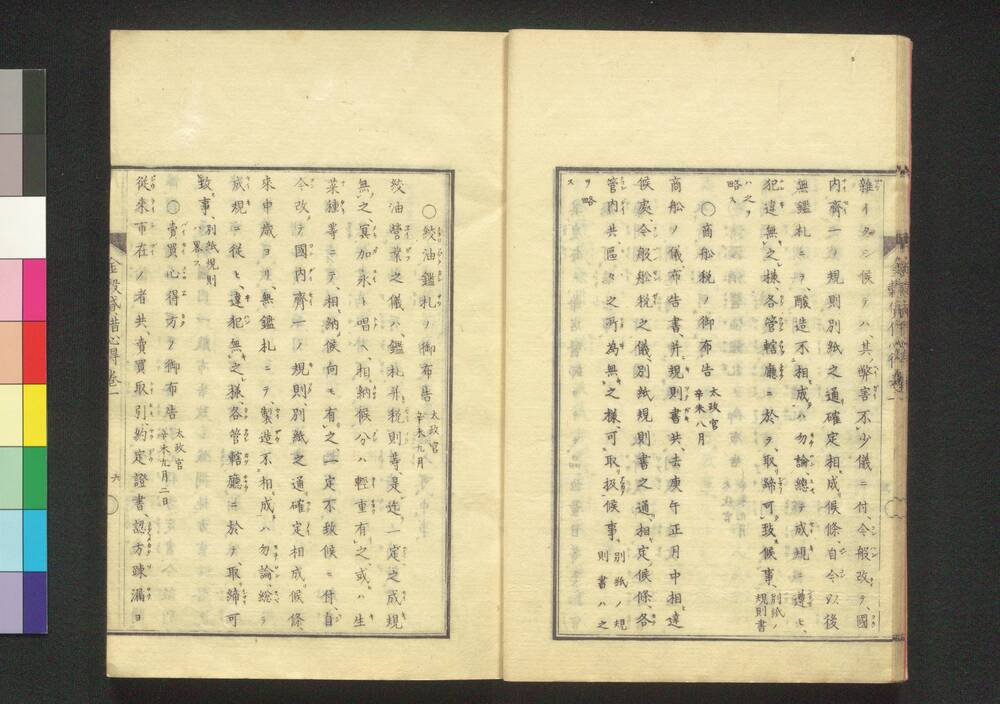 雜イタシ候テハ其弊害不少儀ニ付今般改テ國
内齊一ノ規則別紙之通確定相成候條自今以後
無鑑札ニテ釀造不相成ハ勿論總テ成規ニ遵ヒ
犯違無之樣各管轄廳ニ於テ取締可致候事 別紙ノ規則書
ハ之ヲ略ス
○商船税ノ御布告 太政官 辛未八月
商船ノ儀布告書并規則書共去庚午正月中相達
候處今般船税之儀別紙規則書之通相定候條各
管内共區々之所為無之樣可取扱候事 別紙ノ規則書ハ之
ヲ略ス
○絞油鑑札ノ御布告 太政官 辛未九月
絞油營業之儀ハ鑑札并税則等是迄一定之成規
無之冥加永ト唱ヘ相納候分ハ輕重有之或ハ生
菜種等ニテ相納候向モ有之一定不致候ニ付自
今改テ國内齊一ノ規則別紙之通確定相成候條
來申歳ヨリ無鑑札ニテ製造不相成ハ勿論總テ
成規ニ從ヒ違犯無之樣各管轄廳ニ於テ取締可
致事 別紙規則ハ畧ス
○賣買心得方ノ御布告 太政官 辛未九月二日
從來市在ノ者共賣買取引約定證書認方疎漏ヨ
金穀貸借心得 卷一 六